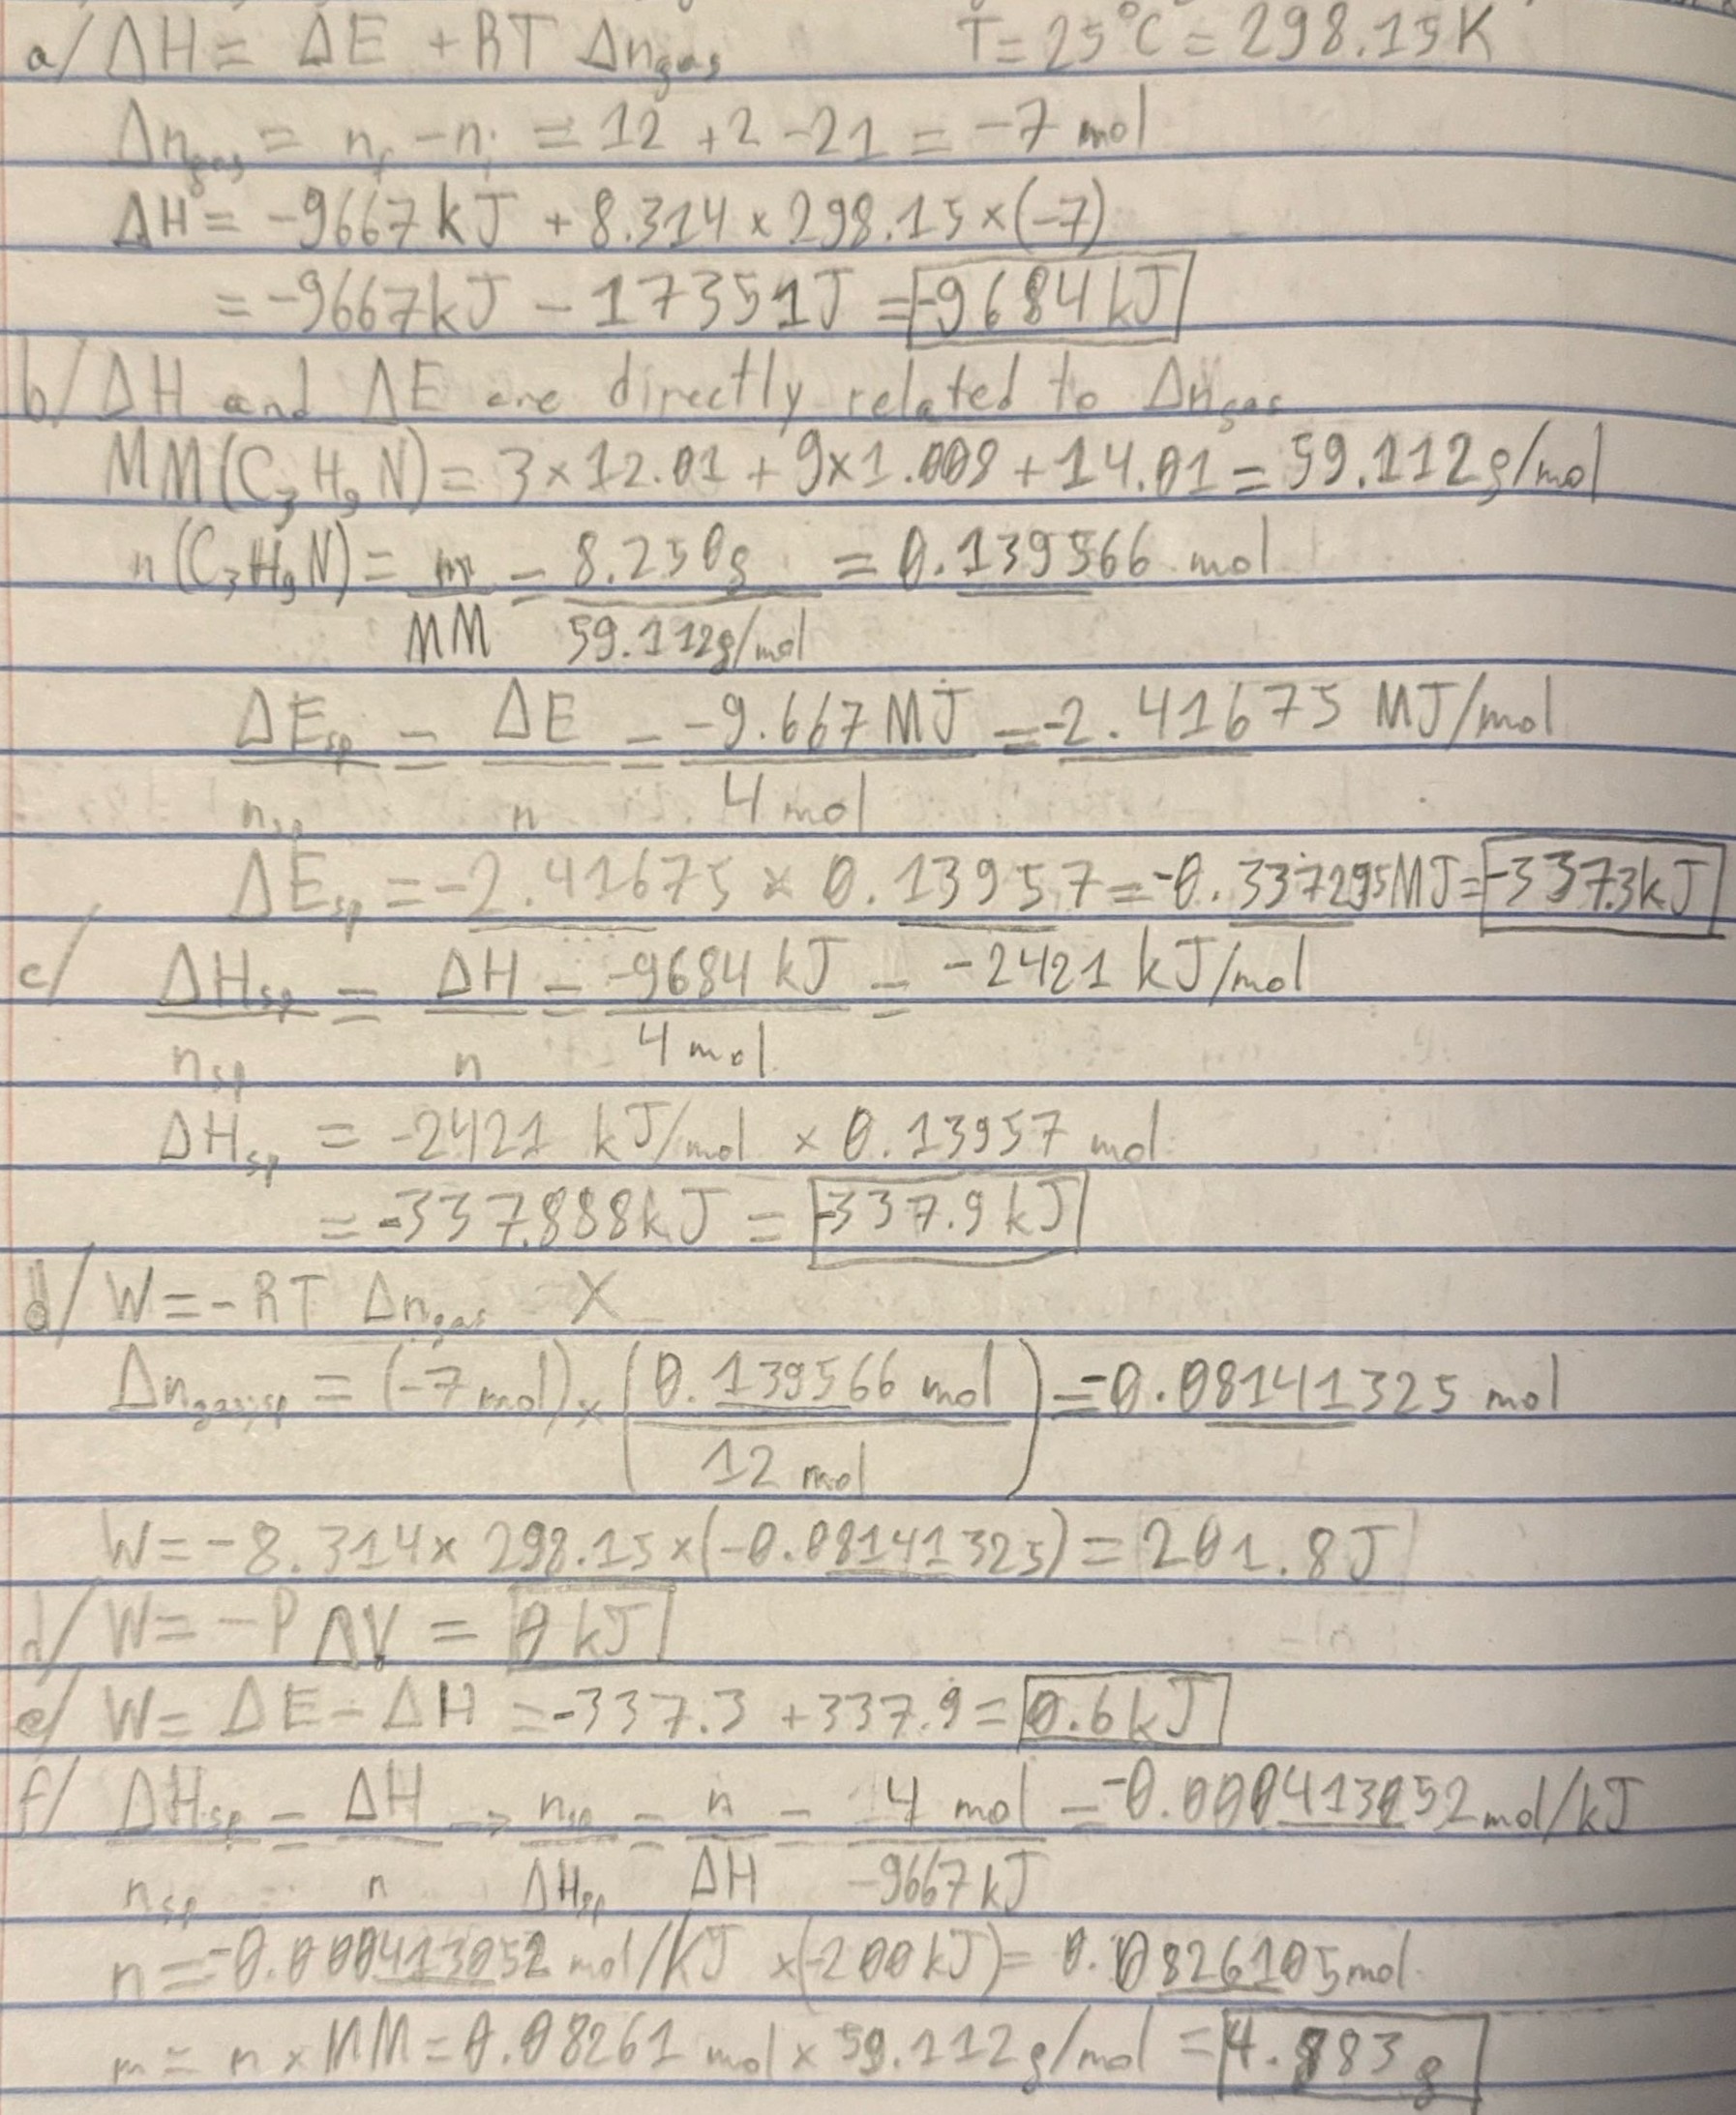 a/ ΔH = ΔE + RT Δn_gas T = 25°C = 298.15K
Δn_gas = n_f - n_i = 12 + 2 - 21 = -7 mol
ΔH = -9667 kJ + 8.314 × 298.15 × (-7)
= -9667kJ - 17351J = -9684 kJ
b/ ΔH and ΔE are directly related to Δn_gas
MM(C₃H₉N) = 3×12.01 + 9×1.008 + 14.01 = 59.112g/mol
n(C₃H₉N) = m/MM = 8.250g/59.112g/mol = 0.139566 mol
ΔE_sp/n_sp = ΔE/n = -9.667 MJ/4 mol = -2.41675 MJ/mol
ΔE_sp = -2.41675 × 0.13957 = -0.337295MJ = -337.3kJ
c/ ΔH_sp/n_sp = ΔH/n = -9684 kJ/4 mol = -2421 kJ/mol
ΔH_sp = -2421 kJ/mol × 0.13957 mol
= -337.888kJ = -337.9 kJ
d/ W = -RT Δn_gas X
Δn_gas,sp = (-7 mol) × (0.139566 mol/12 mol) = -0.08141325 mol
W = -8.314 × 298.15 × (-0.08141325) = 201.8J
d/ W = -P ΔV = 0 kJ
e/ W = ΔE - ΔH = -337.3 + 337.9 = 0.6 kJ
f/ ΔH_sp/n_sp = ΔH/n → n_sp/ΔH_sp = n/ΔH = 4 mol/-9667 kJ = -0.000413052 mol/kJ
n = -0.000413052 mol/KJ × (-200 kJ) = 0.0826105 mol
m = n × MM = 0.08261 mol × 59.112 g/mol = 4.883 g